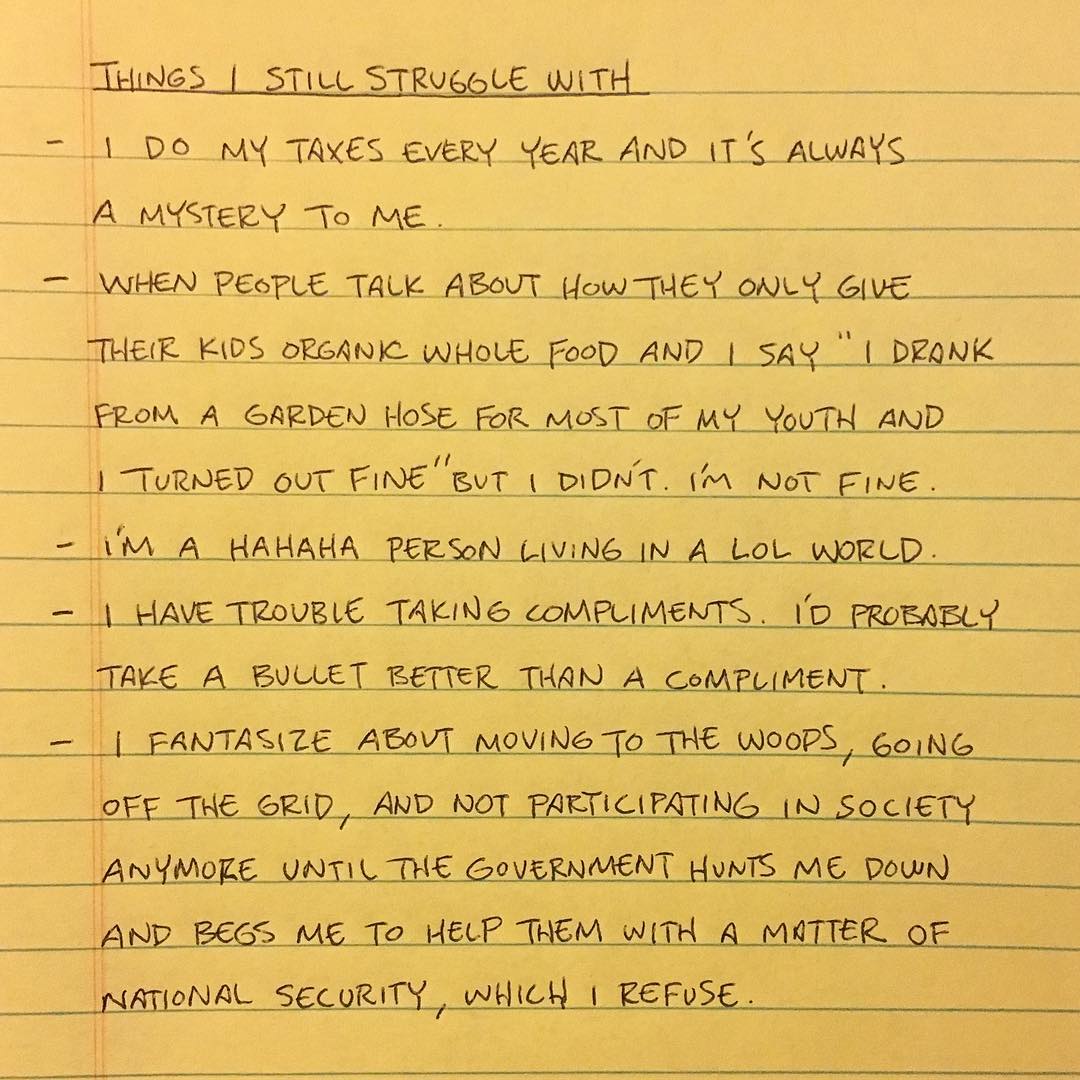 THINGS I STILL STRUGGLE WITH
- I DO MY TAXES EVERY YEAR AND IT'S ALWAYS
A MYSTERY TO ME.
- WHEN PEOPLE TALK ABOUT HOW THEY ONLY GIVE
THEIR KIDS ORGANIC WHOLE FOOD AND I SAY "I DRANK
FROM A GARDEN HOSE FOR MOST OF MY YOUTH AND
I TURNED OUT FINE" BUT I DIDN'T. I'M NOT FINE.
- I'M A HAHAHA PERSON LIVING IN A LOL WORLD.
- I HAVE TROUBLE TAKING COMPLIMENTS. I'D PROBABLY
TAKE A BULLET BETTER THAN A COMPLIMENT.
- I FANTASIZE ABOUT MOVING TO THE WOODS, GOING
OFF THE GRID, AND NOT PARTICIPATING IN SOCIETY
ANYMORE UNTIL THE GOVERNMENT HUNTS ME DOWN
AND BEGS ME TO HELP THEM WITH A MATTER OF
NATIONAL SECURITY, WHICH I REFUSE.